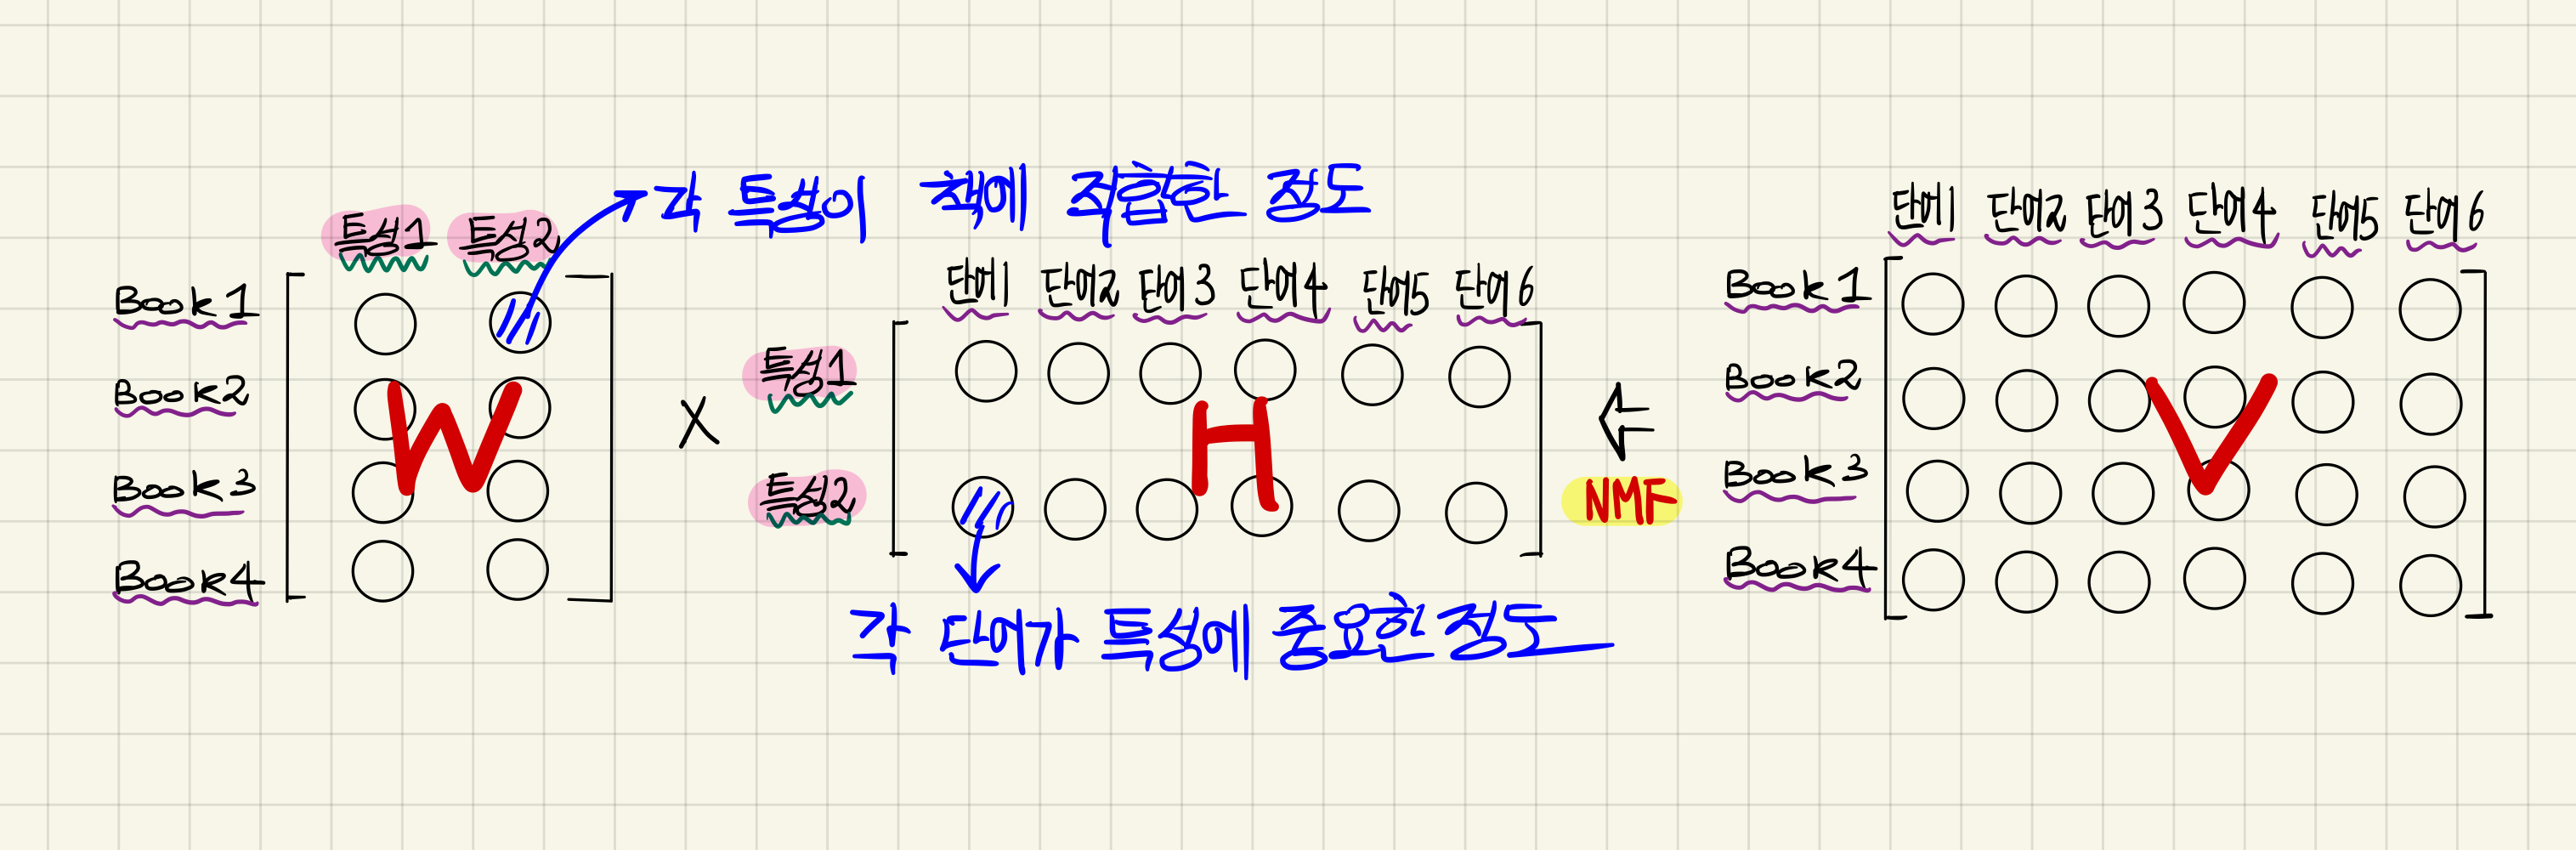 각 특성이 책에 적합한 정도
특성1 특성2
Book 1
Book2
Book3
Book4
W
X
단어1 단어2 단어3 단어4 단어5 단어6
특성1
특성2
H
각 단어가 특성에 중요한 정도
NMF
단어1 단어2 단어3 단어4 단어5 단어6
Book 1
Book2
Book3
Book4
V